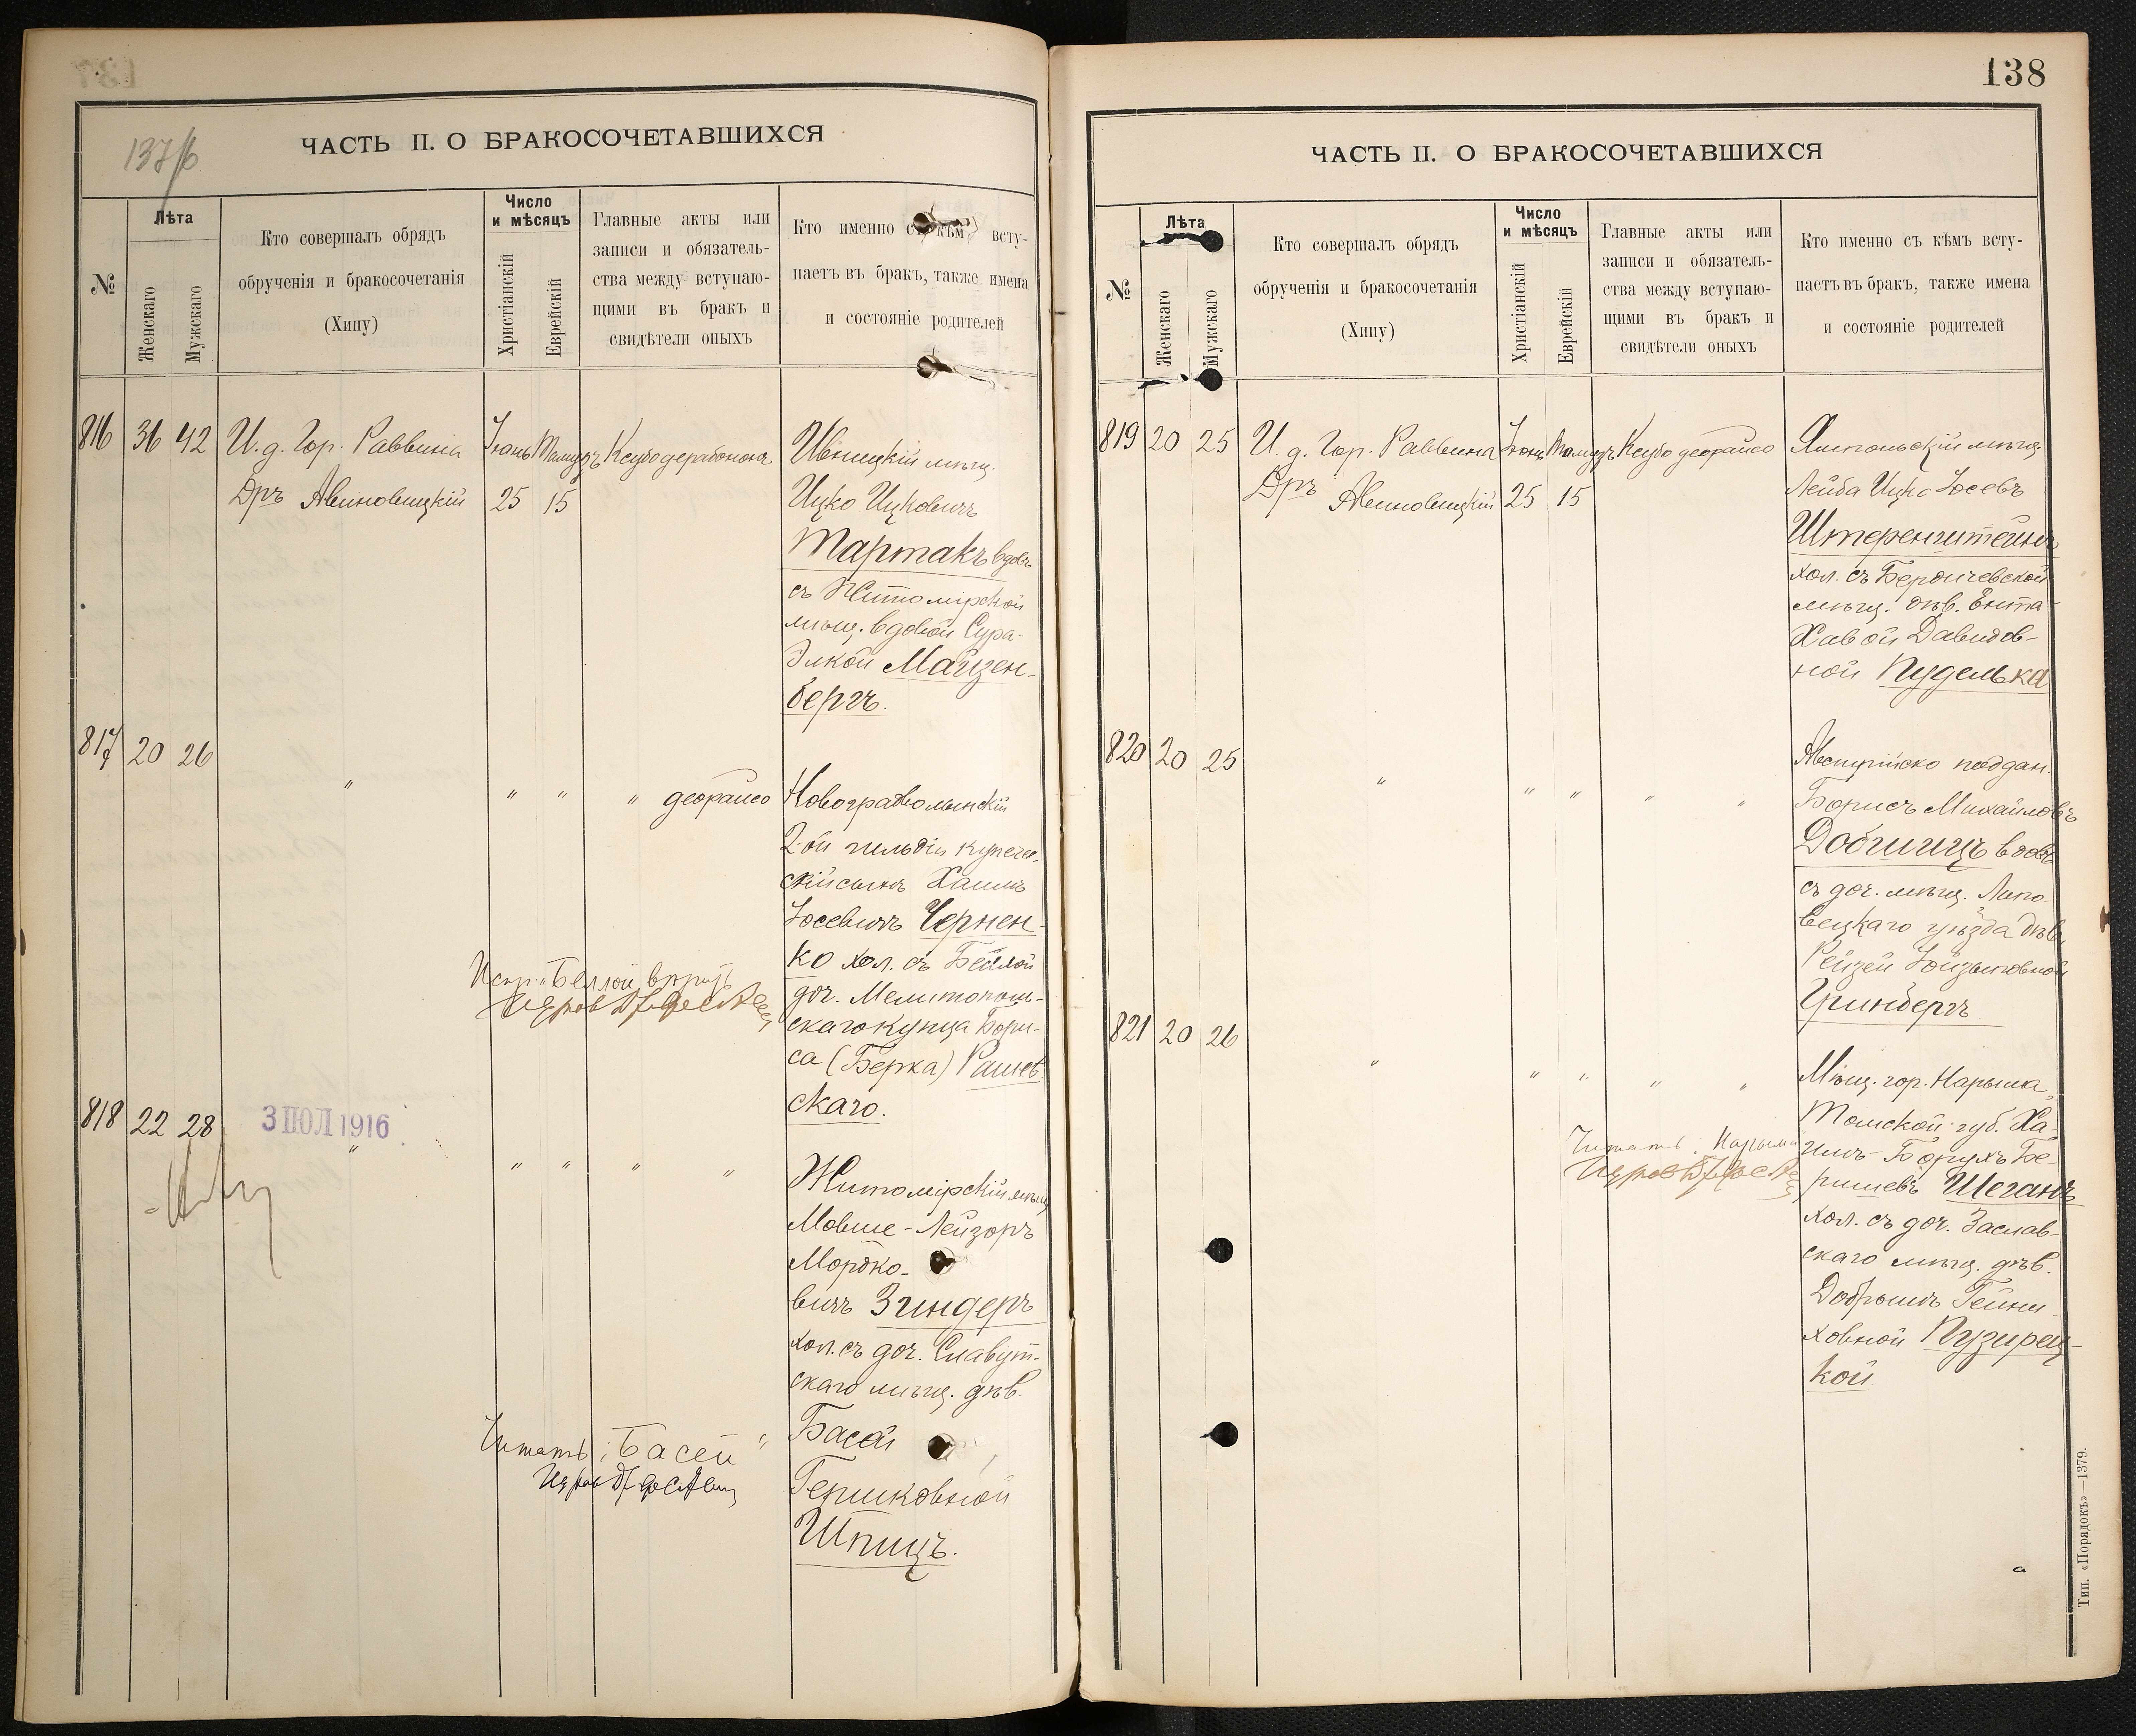 137/б
ЧАСТЬ II. О БРАКОСОЧЕТАВШИХСЯ
№
Лѣта
Женскаго
Мужскаго
Кто совершалъ обрядъ
обрученія и бракосочетанія
(Хипу)
Число
и мѣсяцъ
Христіанскій
Еврейскій
Главные акты или
записи и обязатель-
ства между вступаю-
щими въ бракъ и
свидѣтели оныхъ
Кто именно съ кѣмъ всту-
паетъ въ бракъ, также имена
и состояніе родителей
816 36 42 И. д. Гор. Раввина Іюнь Тамузъ Ксубо дерабонона Ивницкій мѣщ.
Дръ Авиновицкій 25 15 Ицко Ицковичъ
Тартакъ вдов.
съ Житомірской
мѣщ. вдовой Сура-
Элкой Майзен-
бергъ.
817 20 26 " " " " деорайсо Новоградволынскій
2-ой гильдіи купече-
скій сынъ Хаимъ
Іосевичъ Чернен-
ко хол. съ Бейлой
доч. Мелитополь-
скаго купца Бори-
са (Берка) Рашев-
скаго.
818 22 28 " " " " " Житомірскій мѣщ.
3 ІЮЛ 1916
Мовше-Лейзоръ
Мордко-
вичъ Зиндеръ
хол. съ доч. Славут-
скаго мѣщ. дѣв.
Читать: "Басей" Басей
Гершковной
Шпицъ.
138
ЧАСТЬ II. О БРАКОСОЧЕТАВШИХСЯ
№
Лѣта
Женскаго
Мужскаго
Кто совершалъ обрядъ
обрученія и бракосочетанія
(Хипу)
Число
и мѣсяцъ
Христіанскій
Еврейскій
Главные акты или
записи и обязатель-
ства между вступаю-
щими въ бракъ и
свидѣтели оныхъ
Кто именно съ кѣмъ всту-
паетъ въ бракъ, также имена
и состояніе родителей
819 20 25 И. д. Гор. Раввина Іюнь Тамузъ Ксубо деорайсо Ямпольскій мѣщ.
Дръ Авиновицкій 25 15 Лейба Ицко Іосевъ
Штеренштейнъ
хол. съ Бердичевской
мѣщ. дѣв. Ента-
Хавой Давидов-
ной Пуделька
820 20 25 " " " " " Австрійско поддан.
Борисъ Михайловъ
Добшицъ вдов.
съ доч. мѣщ. Липо-
вецкаго уѣзда дѣв.
Рейзей
Гринбергъ
821 20 26 " " " " " Мѣщ. гор. Нарыма,
Томской губ. Ха-
Читать: Нарыма
имъ-Борухъ Бе-
ришевъ Шеганъ
хол. съ доч. Заслав-
скаго мѣщ. дѣв.
Добрышъ Гейни-
ховной Пузирец-
кой
Тип. «Порядокъ»—1379.